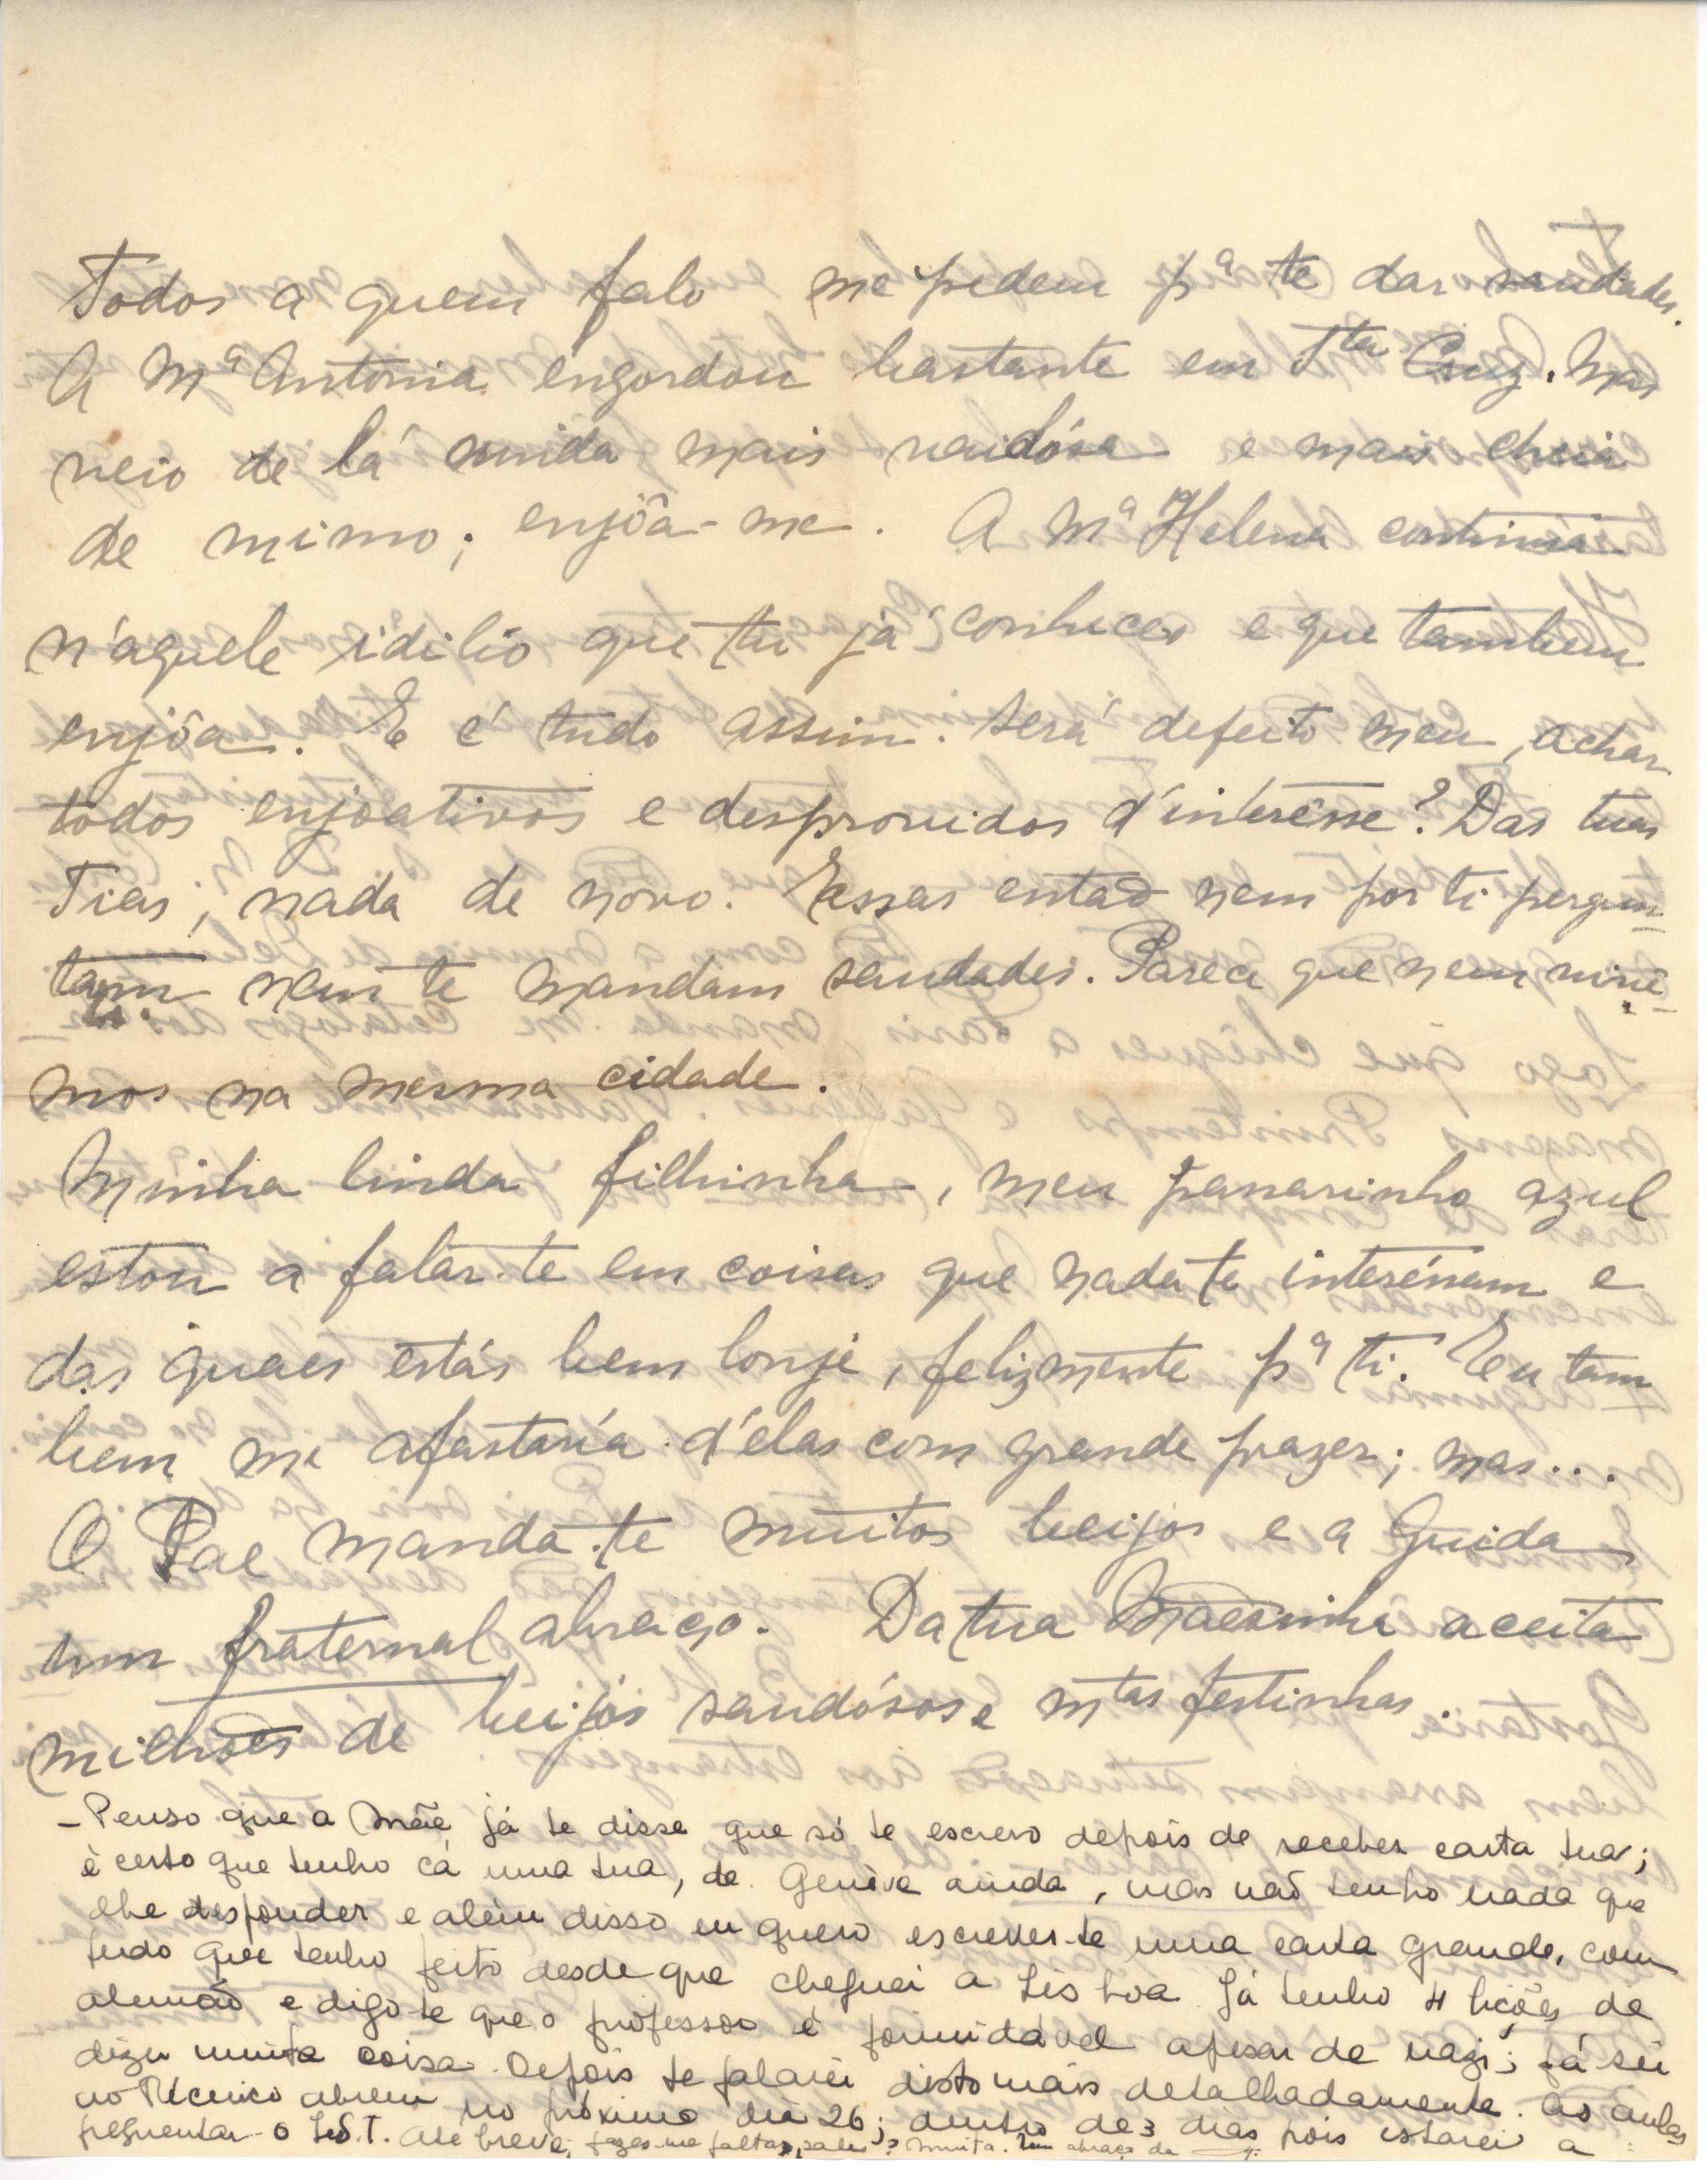 Todos a quem falo me pedem pª te dar saudades.
A Mª Antonia engordou bastante em Sta Cruz. Mas
veio de lá ainda mais vaidósa e mais cheia
de mimo; enjôa-me. A Mª Helena continúa
n'aquele idilio que tu já conheces e que tambem
enjôa. E é tudo assim. Será defeito meu, achar
todos enjoativos e desprovidos d'interêsse? Das tuas
Tias, nada de novo. Essas então nem por ti pergun-
tam nem te mandam saudades. Parece que nem vivê-
mos na mesma cidade.
Minha linda filhinha, meu passarinho azul
estou a falar-te em coisas que nada te interéssam e
das quaes estás bem longe, felizmente pª ti. Eu tam
bem me afastaría d'elas com grande prazer; mas...
O Pae manda-te muitos beijos e a Guida
um fraternal abraço. Da tua Mãesinha aceita
milhões de beijos saudósos e mtas festinhas.
- Penso que a Mãe já te disse que só te escrevo depois de receber carta tua;
é certo que tenho cá uma tua, de Genève ainda, mas não tenho nada que
lhe responder e alêm disso eu quero escrever-te uma carta grande, com
tudo que tenho feito desde que cheguei a Lisboa. Já tenho 4 lições de
alemão e digo-te que o professor é formidável apesar de nazi; já sei
dizer muita coisa. Depois te falarei disto mais detalhadamente. As aulas
no Técnico abrem no próximo dia 26; dentro de 3 dias pois estarei a
frequentar o I.S.T. Até breve, fazes-me falta, sabes? Muita. Um abraço da